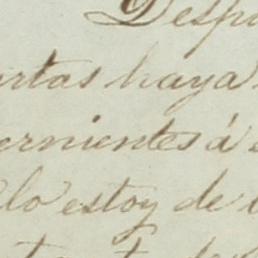 Despu
rtas haya
ernientes á
lo estoy de